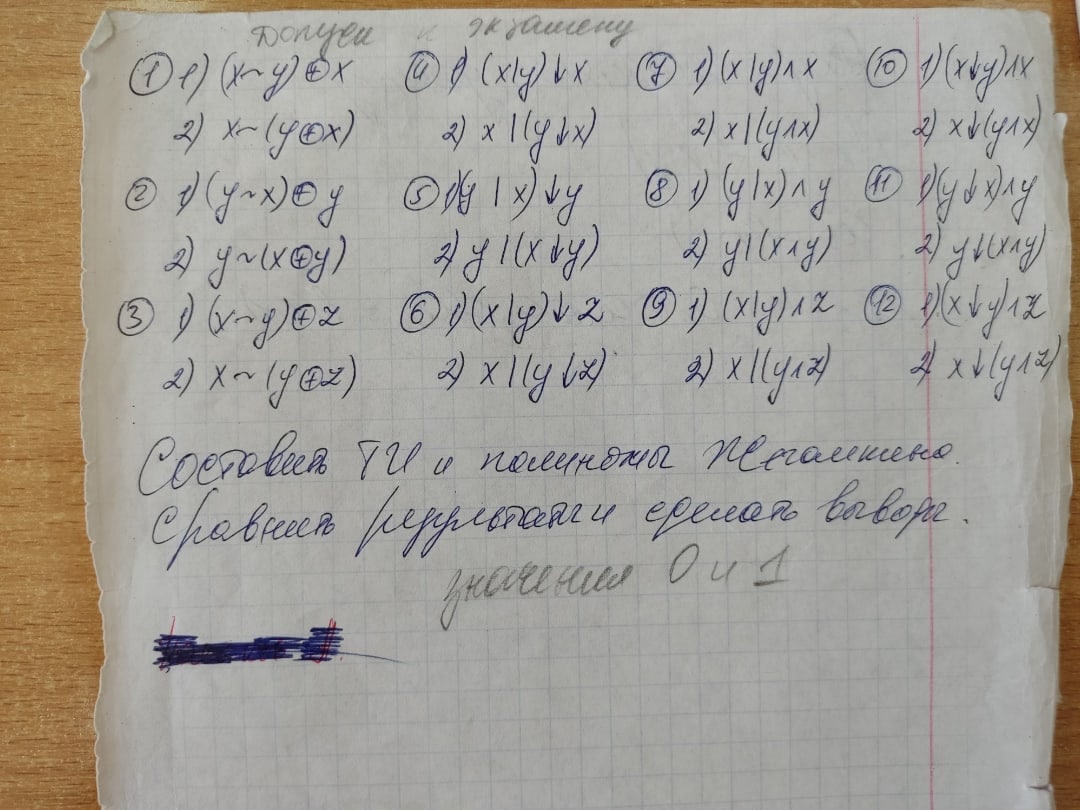 Допуск к экзамену
① 1) (x~y)⊕x ④ 1) (x|y)↓x ⑦ 1) (x|y)∧x ⑩ 1) (x↓y)∧x
2) x~(y⊕x) 2) x|(y↓x) 2) x|(y∧x) 2) x↓(y∧x)
② 1) (y~x)⊕y ⑤ 1) (y|x)↓y ⑧ 1) (y|x)∧y ⑪ 1) (y↓x)∧y
2) y~(x⊕y) 2) y|(x↓y) 2) y|(x∧y) 2) y↓(x∧y)
③ 1) (x~y)⊕z ⑥ 1) (x|y)↓z ⑨ 1) (x|y)∧z ⑫ 1) (x↓y)∧z
2) x~(y⊕z) 2) x|(y↓z) 2) x|(y∧z) 2) x↓(y∧z)
Составить ТИ и полиномы Жегалкина.
Сравнить результаты и сделать выводы.
значения 0 и 1